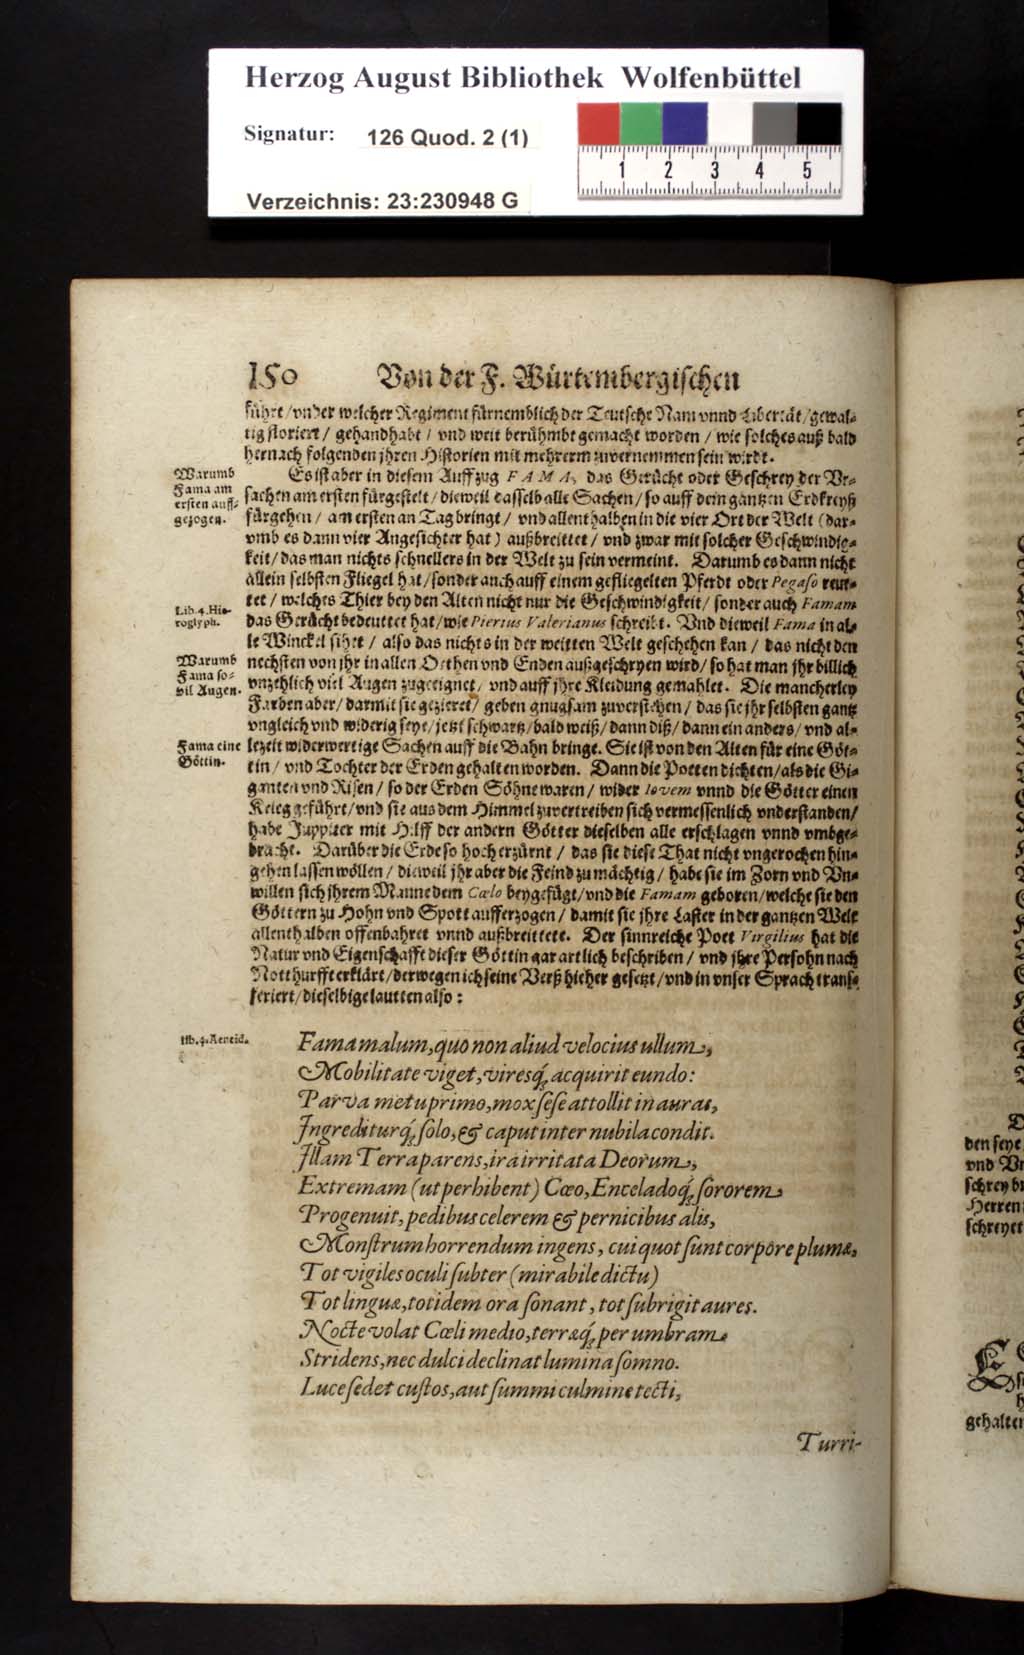 Herzog August Bibliothek Wolfenbüttel
Signatur: 126 Quod. 2 (1)
1 2 3 4 5
Verzeichnis: 23:230948 G
150 Von der F. Würtembergischen
führt / vnder welcher Regiment fürnemblich der Teutsche Nam vnnd Libertät / gewal-
tig floriert / gehandhabt / vnd weit berühmbt gemacht worden / wie solches auß bald
hernach folgenden jhren Historien mit mehrerm zuvernemmen sein wirdt.
Warumb
Fama am
ersten auff-
gezogen.
Es ist aber in diesem Auffzug FAMA, das Gerücht oder Geschrey der Vr-
sachen am ersten fürgestelt / dieweil dasselb alle Sachen / so auff dem gäntzen Erdkreyß
fürgehen / am ersten an Tag bringt / vnd allenthalben in die vier Ort der Welt (dar-
vmb es dann vier Angesichter hat) außbreittet / vnd zwar mit solcher Geschwindig-
keit / das man nichts schnellers in der Welt zu sein vermeint. Darumb es dann nicht
allein selbsten Fliegel hat / sonder auch auff einem gefliegelten Pferdt oder Pegaso reut-
tet / welches Thier bey den Alten nicht nur die Geschwindigkeit / sonder auch Famam
Lib. 4. Hie-
roglyph.
das Gerücht bedeuttet hat / wie Pierius Valerianus schreibt. Vnd dieweil Fama in al-
le Winckel sihet / also das nichts in der weitten Welt geschehen kan / das nicht den
Warumb
Fama so-
vil Augen.
nechsten von jhr in allen Orthen vnd Enden außgeschryen wird / so hat man jhr billich
vnzehlich viel Augen zugeeignet / vnd auff jhre Kleidung gemahlet. Die mancherley
Farben aber / darmit sie gezieret / geben gnugsam zuverstehen / das sie jhr selbsten gantz
vngleich vnd widerig seye / jetzt schwartz / bald weiß / dann diß / dann ein anders / vnd al-
Fama eine
Göttin.
lezeit widerwertige Sachen auff die Bahn bringe. Sie ist von den Alten für eine Göt-
tin / vnd Tochter der Erden gehalten worden. Dann die Poeten dichten / als die Gi-
ganten vnd Risen / so der Erden Söhne waren / wider Iovem vnnd die Götter einen
Krieg geführt / vnd sie aus dem Himmel zuvertreiben sich vermessenlich vnderstanden /
habe Juppiter mit Hilff der andern Götter dieselben alle erschlagen vnnd vmbge-
bracht. Darüber die Erde so hoch erzürnt / das sie diese That nicht vngerochen hin-
gehen lassen wöllen / dieweil jhr aber die Feind zu mächtig / habe sie im Zorn vnd Vn-
willen sich jhrem Manne dem Cœlo beygefügt / vnd die Famam geboren / welche sie den
Göttern zu Hohn vnd Spott aufferzogen / damit sie jhre Laster in der gantzen Welt
allenthalben offenbahret vnnd außbreittete. Der sinnreiche Poet Virgilius hat die
Natur vnd Eigenschafft dieser Göttin gar artlich beschriben / vnd jhre Persohn nach
Notthurfft erklärt / derwegen ich seine Verß hieher gesetzt / vnd in vnser Sprach trans-
feriert / dieselbige lautten also:
lib. 4. Aeneid.
Fama malum, quo non aliud velocius ullum,
Mobilitate viget, viresq́; acquirit eundo:
Parva metu primo, mox sese attollit in auras,
Ingrediturq́; solo, & caput inter nubila condit.
Illam Terra parens, ira irritata Deorum,
Extremam (ut perhibent) Cœo, Enceladoq́; sororem
Progenuit, pedibus celerem & pernicibus alis,
Monstrum horrendum ingens, cui quot sunt corpore plumæ,
Tot vigiles oculi subter (mirabile dictu)
Tot linguæ, totidem ora sonant, tot subrigit aures.
Nocte volat Cœli medio, terræq́; per umbram
Stridens, nec dulci declinat lumina somno.
Luce sedet custos, aut summi culmine tecti,
Turri-
den seye
vnd
Herren
schreyet
gehalten